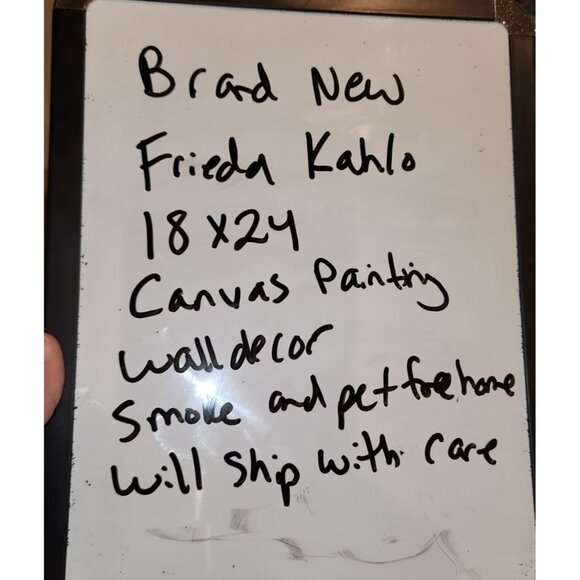 Brand New
Frieda Kahlo
18x24
Canvas Painting
wall decor
Smoke and pet free home
will ship with care